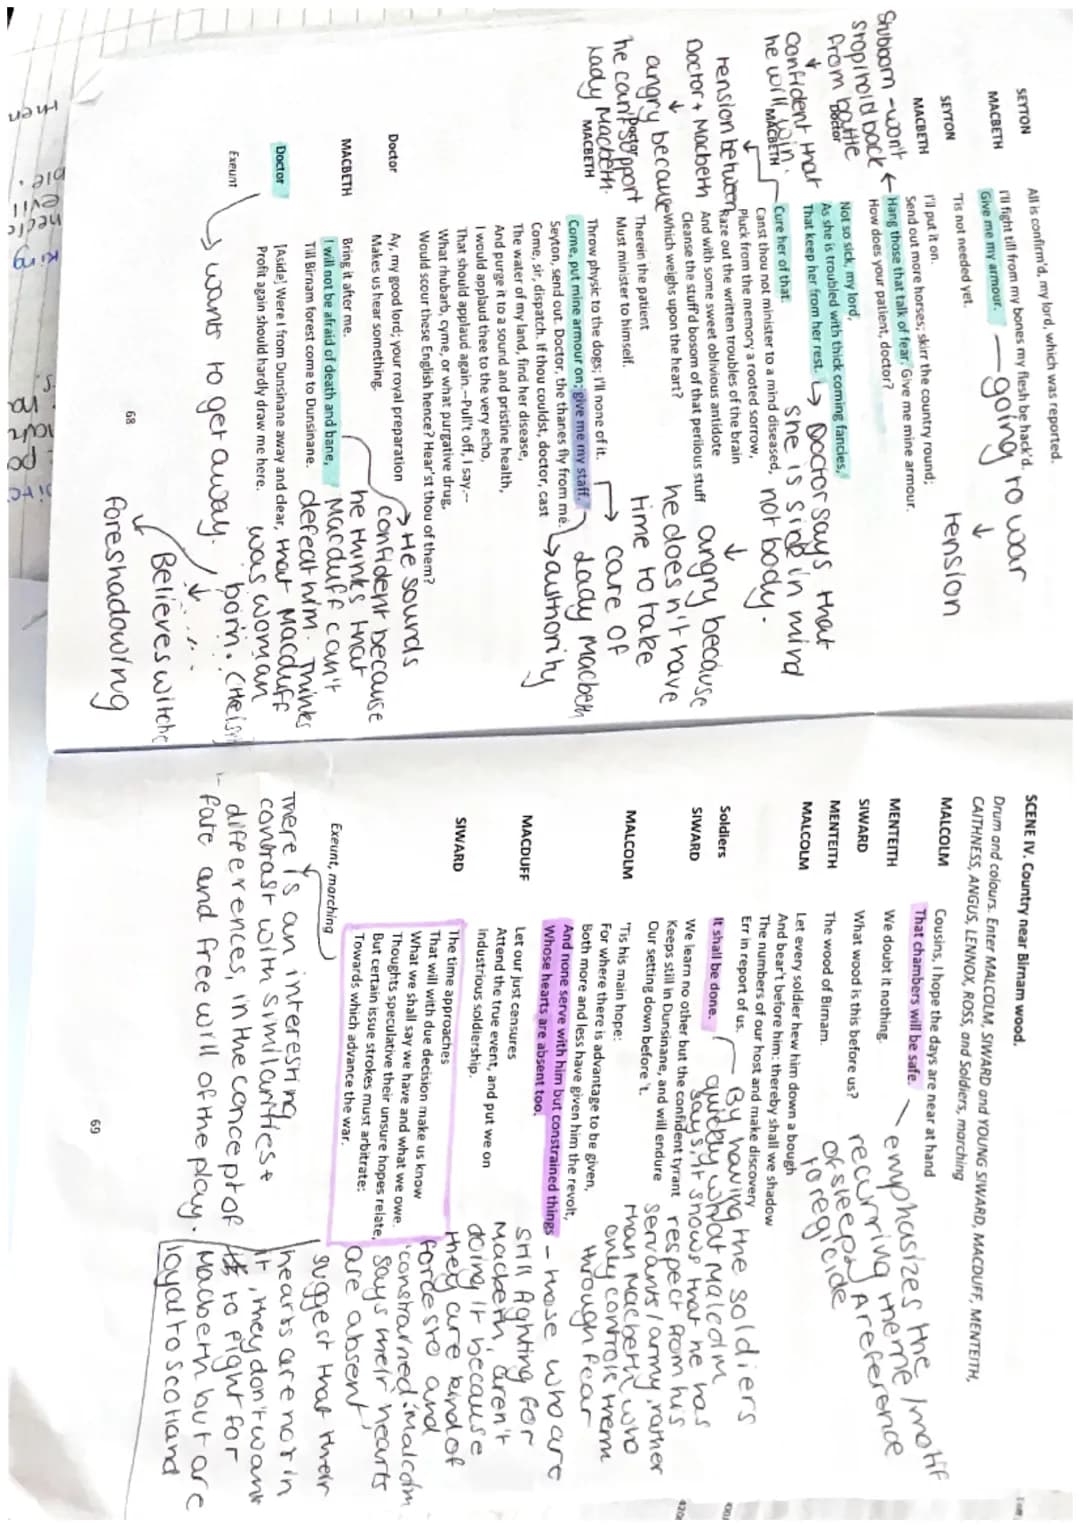 SEYTON All is confirm'd, my lord, which was reported.
MACBETH I'll fight till from my bones my flesh be hack'd.
Give me my armour.
SEYTON 'Tis not needed yet.
MACBETH I'll put it on.
Send out more horses; skirr the country round;
Hang those that talk of fear. Give me mine armour.
How does your patient, doctor?
Doctor Not so sick, my lord,
As she is troubled with thick coming fancies,
That keep her from her rest.
MACBETH Cure her of that.
Canst thou not minister to a mind diseased,
Pluck from the memory a rooted sorrow,
Raze out the written troubles of the brain
And with some sweet oblivious antidote
Cleanse the stuff'd bosom of that perilous stuff
Which weighs upon the heart?
Doctor Therein the patient
Must minister to himself.
MACBETH Throw physic to the dogs; I'll none of it.
Come, put mine armour on; give me my staff.
Seyton, send out. Doctor, the thanes fly from me.
Come, sir, dispatch. If thou couldst, doctor, cast
The water of my land, find her disease,
And purge it to a sound and pristine health,
I would applaud thee to the very echo,
That should applaud again.--Pull't off, I say.--
What rhubarb, cyme, or what purgative drug,
Would scour these English hence? Hear'st thou of them?
Doctor Ay, my good lord; your royal preparation
Makes us hear something.
MACBETH Bring it after me.
I will not be afraid of death and bane,
Till Birnam forest come to Dunsinane.
Doctor [Aside] Were I from Dunsinane away and clear,
Profit again should hardly draw me here.
Exeunt
68
going to war
tension
Stubborn - won't
stop/hold back
from battle
confident that
he will win.
Doctor says that
she is sick in mind
not body.
tension between
Doctor + Macbeth
angry because
he can't support
Lady Macbeth.
angry because
he doesn't have
time to take
care of
Lady Macbeth
authority
He sounds
confident because
he thinks that
Macduff can't
defeat him. Thinks
that Macduff
was woman
born.
wants to get away.
Believes witche
foreshadowing
SCENE IV. Country near Birnam wood.
Drum and colours. Enter MALCOLM, SIWARD and YOUNG SIWARD, MACDUFF, MENTEITH,
CAITHNESS, ANGUS, LENNOX, ROSS, and Soldiers, marching
MALCOLM Cousins, I hope the days are near at hand
That chambers will be safe.
MENTEITH We doubt it nothing.
SIWARD What wood is this before us?
MENTEITH The wood of Birnam.
MALCOLM Let every soldier hew him down a bough
And bear't before him: thereby shall we shadow
The numbers of our host and make discovery
Err in report of us.
Soldiers It shall be done.
SIWARD We learn no other but the confident tyrant
Keeps still in Dunsinane, and will endure
Our setting down before 't.
MALCOLM 'Tis his main hope:
For where there is advantage to be given,
Both more and less have given him the revolt,
And none serve with him but constrained things
Whose hearts are absent too.
MACDUFF Let our just censures
Attend the true event, and put we on
Industrious soldiership.
SIWARD The time approaches
That will with due decision make us know
What we shall say we have and what we owe.
Thoughts speculative their unsure hopes relate,
But certain issue strokes must arbitrate:
Towards which advance the war.
Exeunt, marching
69
emphasizes the motif/
recurring theme
of sleep. A reference
to regicide
By having the soldiers
quickly what Malcolm
says, it shows that he has
respect from his
servants/army, rather
than Macbeth, who
only controls them
through fear
- those who are
still fighting for
Macbeth, aren't
doing it because
they are kind of
forced to and
'constrained'. Malcolm
says their 'hearts
are absent'
suggest that their
hearts are not in
it, they don't want
to fight for
Macbeth but are
loyal to Scotland
There is an interesting
contrast with similarities +
differences, in the concept of
fate and free will of the play.